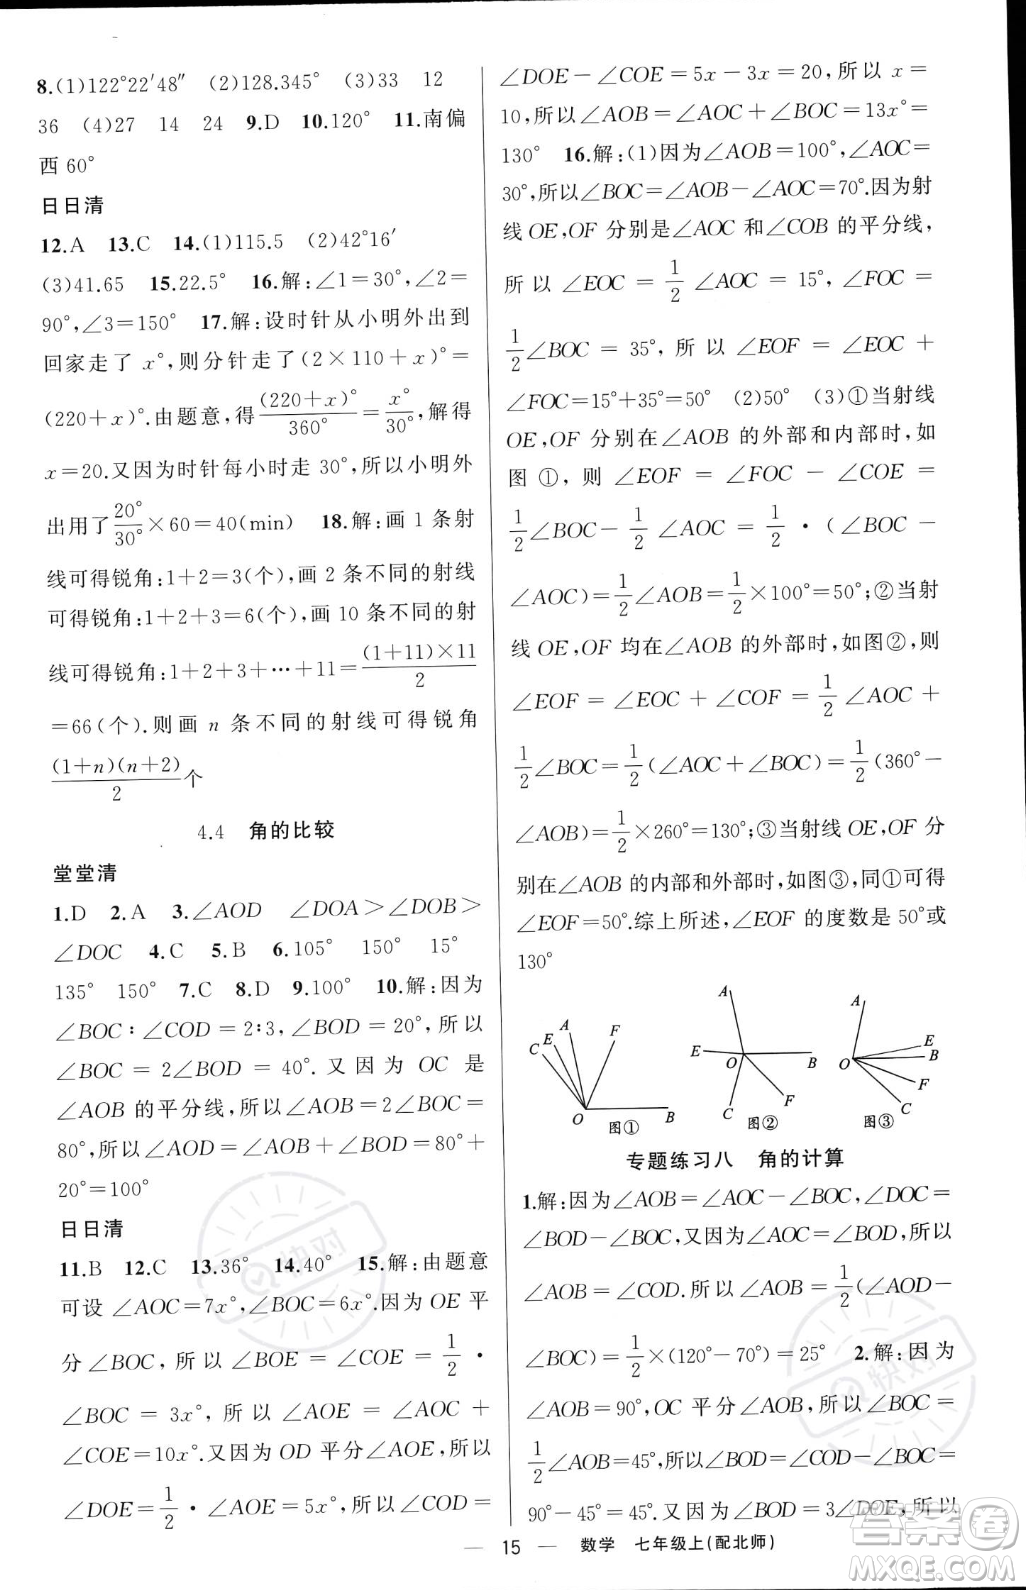 8.(1)122°22′48″ (2)128.345° (3)33 12
36 (4)27 14 24 9.D 10.120° 11.南偏
西 60°
日日清
12.A 13.C 14.(1)115.5 (2)42°16′
(3)41.65 15.22.5° 16.解:∠1=30°,∠2=
90°,∠3=150° 17.解:设时针从小明外出到
回家走了 x°,则分针走了(2×110+x)°=
(220+x)°.由题意,得(220+x)°/360°=x°/30°,解得
x=20.又因为时针每小时走 30°,所以小明外
出用了20°/30°×60=40(min) 18.解:画 1 条射
线可得锐角:1+2=3(个),画 2 条不同的射线
可得锐角:1+2+3=6(个),画 10 条不同的射
线可得锐角:1+2+3+…+11=(1+11)×11/2
=66(个).则画 n 条不同的射线可得锐角
(1+n)(n+2)/2个
4.4 角的比较
堂堂清
1.D 2.A 3.∠AOD ∠DOA>∠DOB>
∠DOC 4.C 5.B 6.105° 150° 15°
135° 150° 7.C 8.D 9.100° 10.解:因为
∠BOC∶∠COD=2∶3,∠BOD=20°,所以
∠BOC=2∠BOD=40°.又因为 OC 是
∠AOB 的平分线,所以∠AOB=2∠BOC=
80°,所以∠AOD=∠AOB+∠BOD=80°+
20°=100°
日日清
11.B 12.C 13.36° 14.40° 15.解:由题意
可设∠AOC=7x°,∠BOC=6x°.因为 OE 平
分∠BOC,所以∠BOE=∠COE=1/2·
∠BOC=3x°,所以∠AOE=∠AOC+
∠COE=10x°.又因为 OD 平分∠AOE,所以
∠DOE=1/2·∠AOE=5x°,所以∠COD=
∠DOE-∠COE=5x-3x=20,所以 x=
10,所以∠AOB=∠AOC+∠BOC=13x°=
130° 16.解:(1)因为∠AOB=100°,∠AOC=
30°,所以∠BOC=∠AOB-∠AOC=70°.因为射
线 OE,OF 分别是∠AOC 和∠COB 的平分线,
所以∠EOC=1/2∠AOC=15°,∠FOC=
1/2∠BOC=35°,所以∠EOF=∠EOC+
∠FOC=15°+35°=50° (2)50° (3)①当射线
OE,OF 分别在∠AOB 的外部和内部时,如
图①,则∠EOF=∠FOC-∠COE=
1/2∠BOC-1/2∠AOC=1/2·(∠BOC-
∠AOC)=1/2∠AOB=1/2×100°=50°;②当射
线 OE,OF 均在∠AOB 的外部时,如图②,则
∠EOF=∠EOC+∠COF=1/2∠AOC+
1/2∠BOC=1/2(∠AOC+∠BOC)=1/2(360°-
∠AOB)=1/2×260°=130°;③当射线 OE,OF 分
别在∠AOB 的内部和外部时,如图③,同①可得
∠EOF=50°.综上所述,∠EOF 的度数是 50°或
130°
C E A F O B 图①
A E O B C F 图②
A E B O F C 图③
专题练习八 角的计算
1.解:因为∠AOB=∠AOC-∠BOC,∠DOC=
∠BOD-∠BOC.又因为∠AOC=∠BOD,所以
∠AOB=∠COD.所以∠AOB=1/2(∠AOD-
∠BOC)=1/2×(120°-70°)=25° 2.解:因为
∠AOB=90°,OC 平分∠AOB,所以∠BOC=
1/2∠AOB=45°,所以∠BOD=∠COD-∠BOC=
90°-45°=45°.又因为∠BOD=3∠DOE,所以
15 数学 七年级上(配北师)
快对
快对
答案圈
MXQE.COM